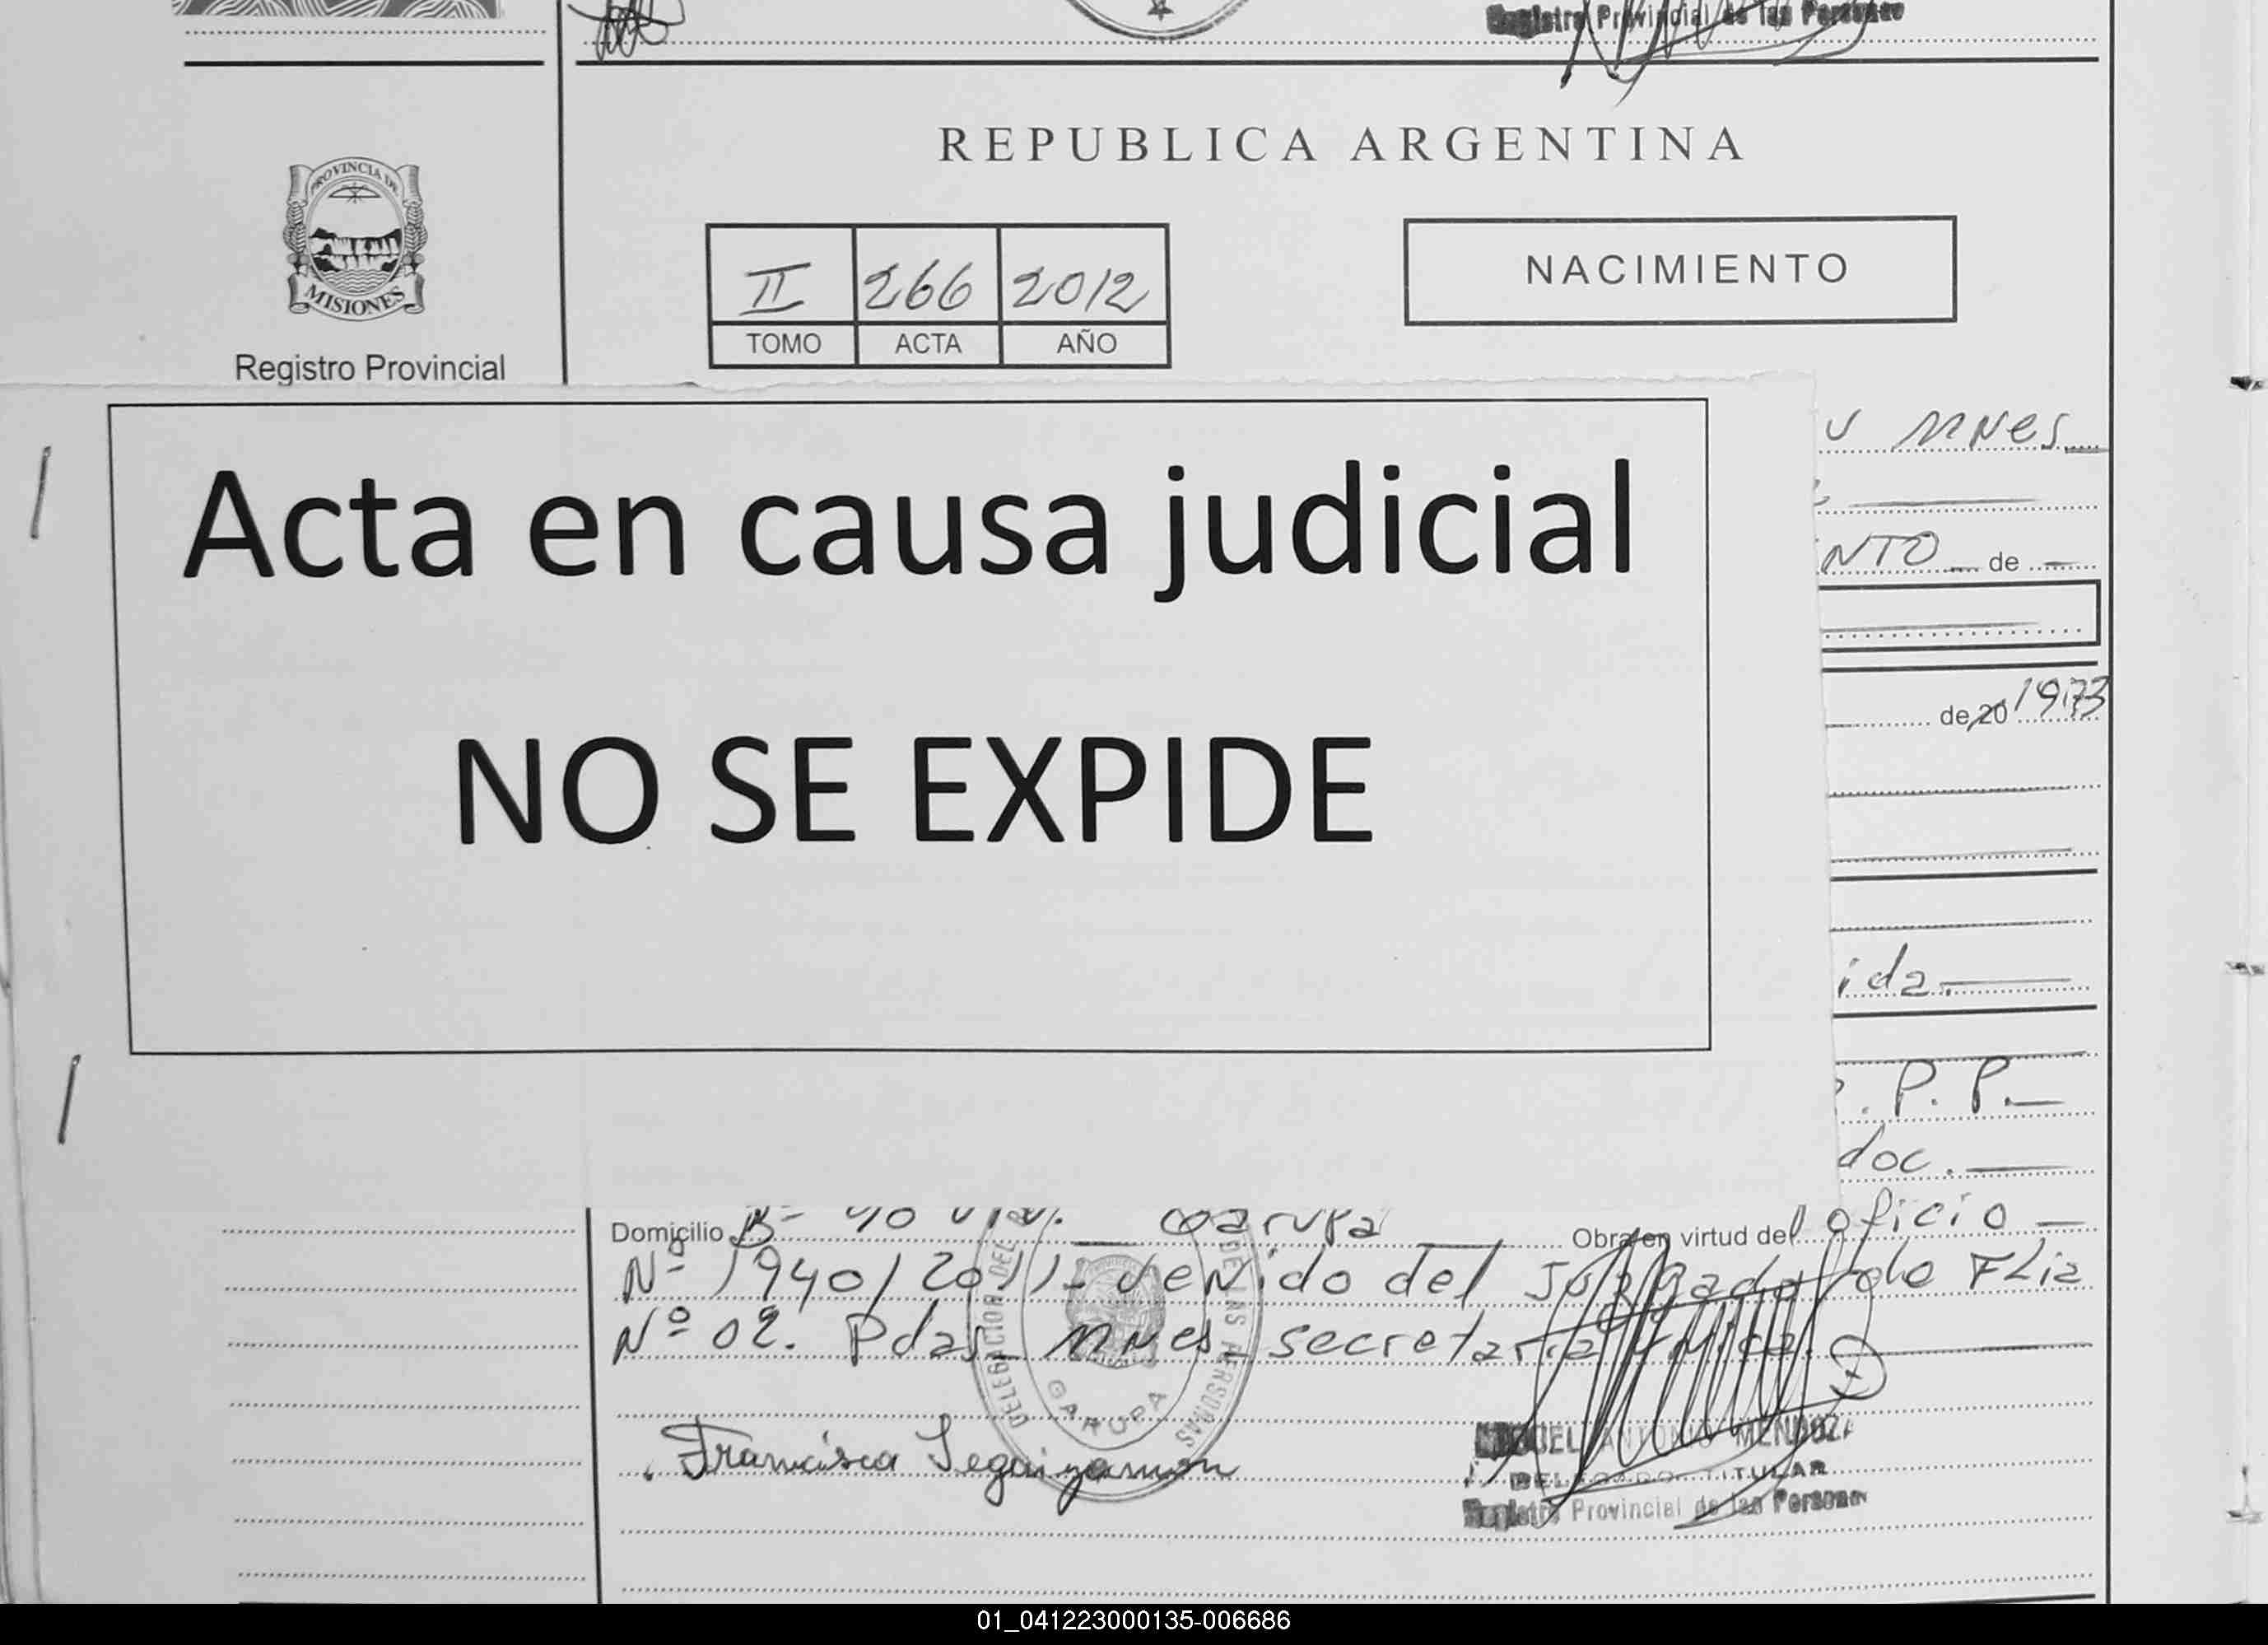 Registro Provincial de las Personas
REPUBLICA ARGENTINA
PROVINCIA DE
MISIONES
II 266 2012
NACIMIENTO
TOMO ACTA AÑO
Registro Provincial
Acta en causa judicial
NO SE EXPIDE
Mnes
NTO de
de 20 1973
ida.
P. P.
doc.
Domicilio Garupa Obra en virtud del oficio
Nº 1940/2011- venido del Juzgado de Flia
Nº 02. Pdas Mnes secretaria única.
DELEGACION DEL DE LAS PERSONAS
GARUPA
Francisca
MIGUEL ANTONIO MENDOZA
DELEGADO TITULAR
Registro Provincial de las Personas
01_041223000135-006686